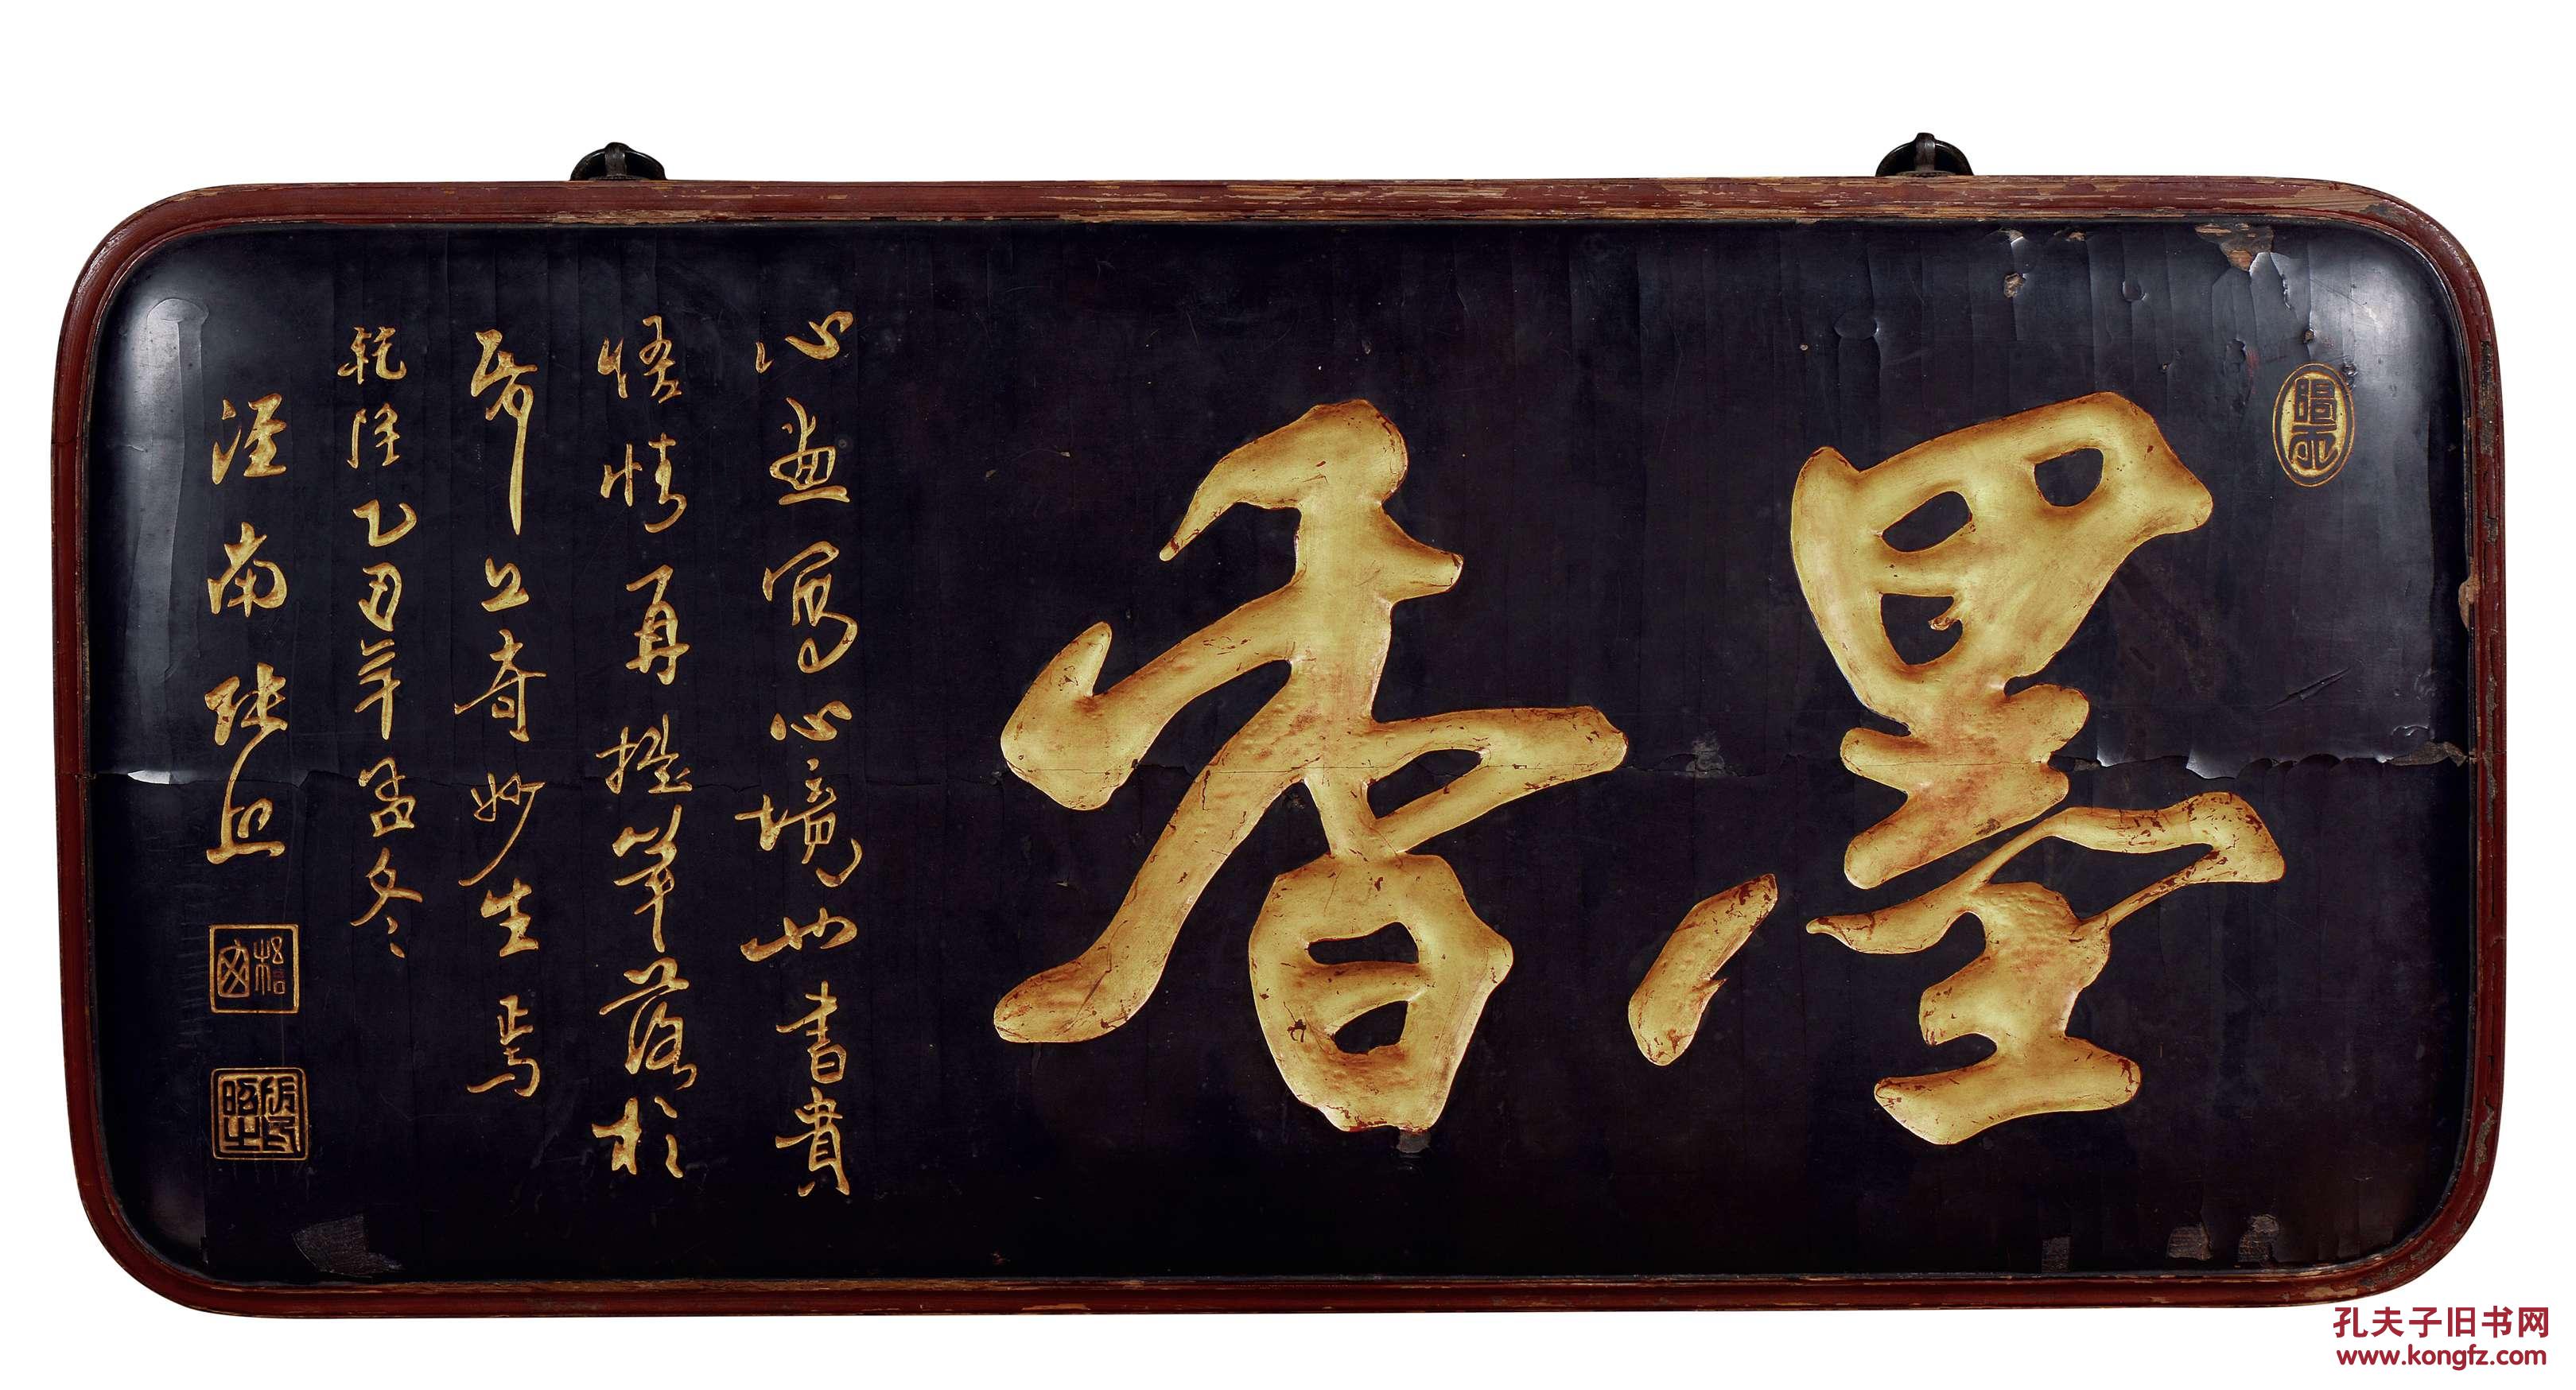 墨香
心画写心境也书貴
悟情再握筆落於
帋上奇妙生焉
乾隆乙丑年孟冬
涇南张照
孔夫子旧书网
www.kongfz.com